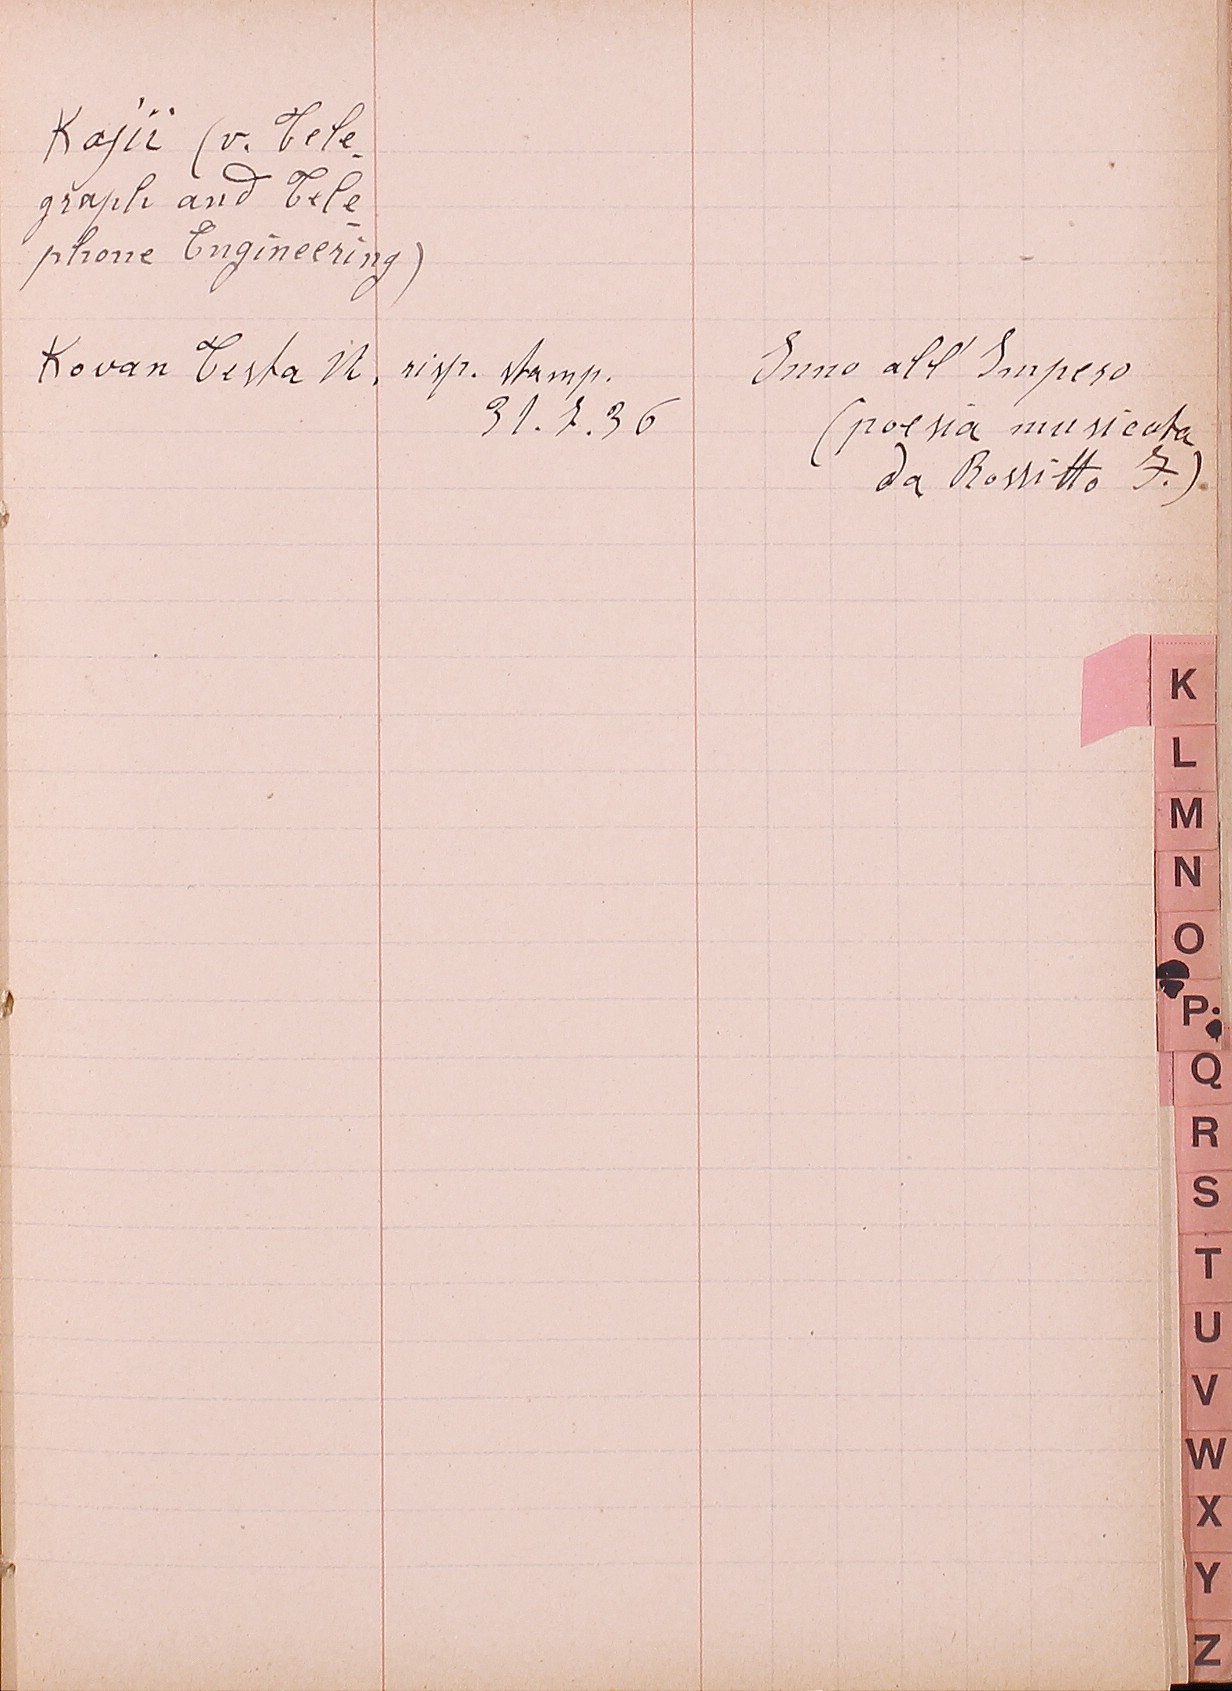 Kajii (v. Tele-
graph and Tele-
phone Engineering)
Kovan Testa N. risp. stamp. Inno all' Impero
31.7.36 (poesia musicata
da Rossitto F.)
K
L
M
N
O
P
Q
R
S
T
U
V
W
X
Y
Z